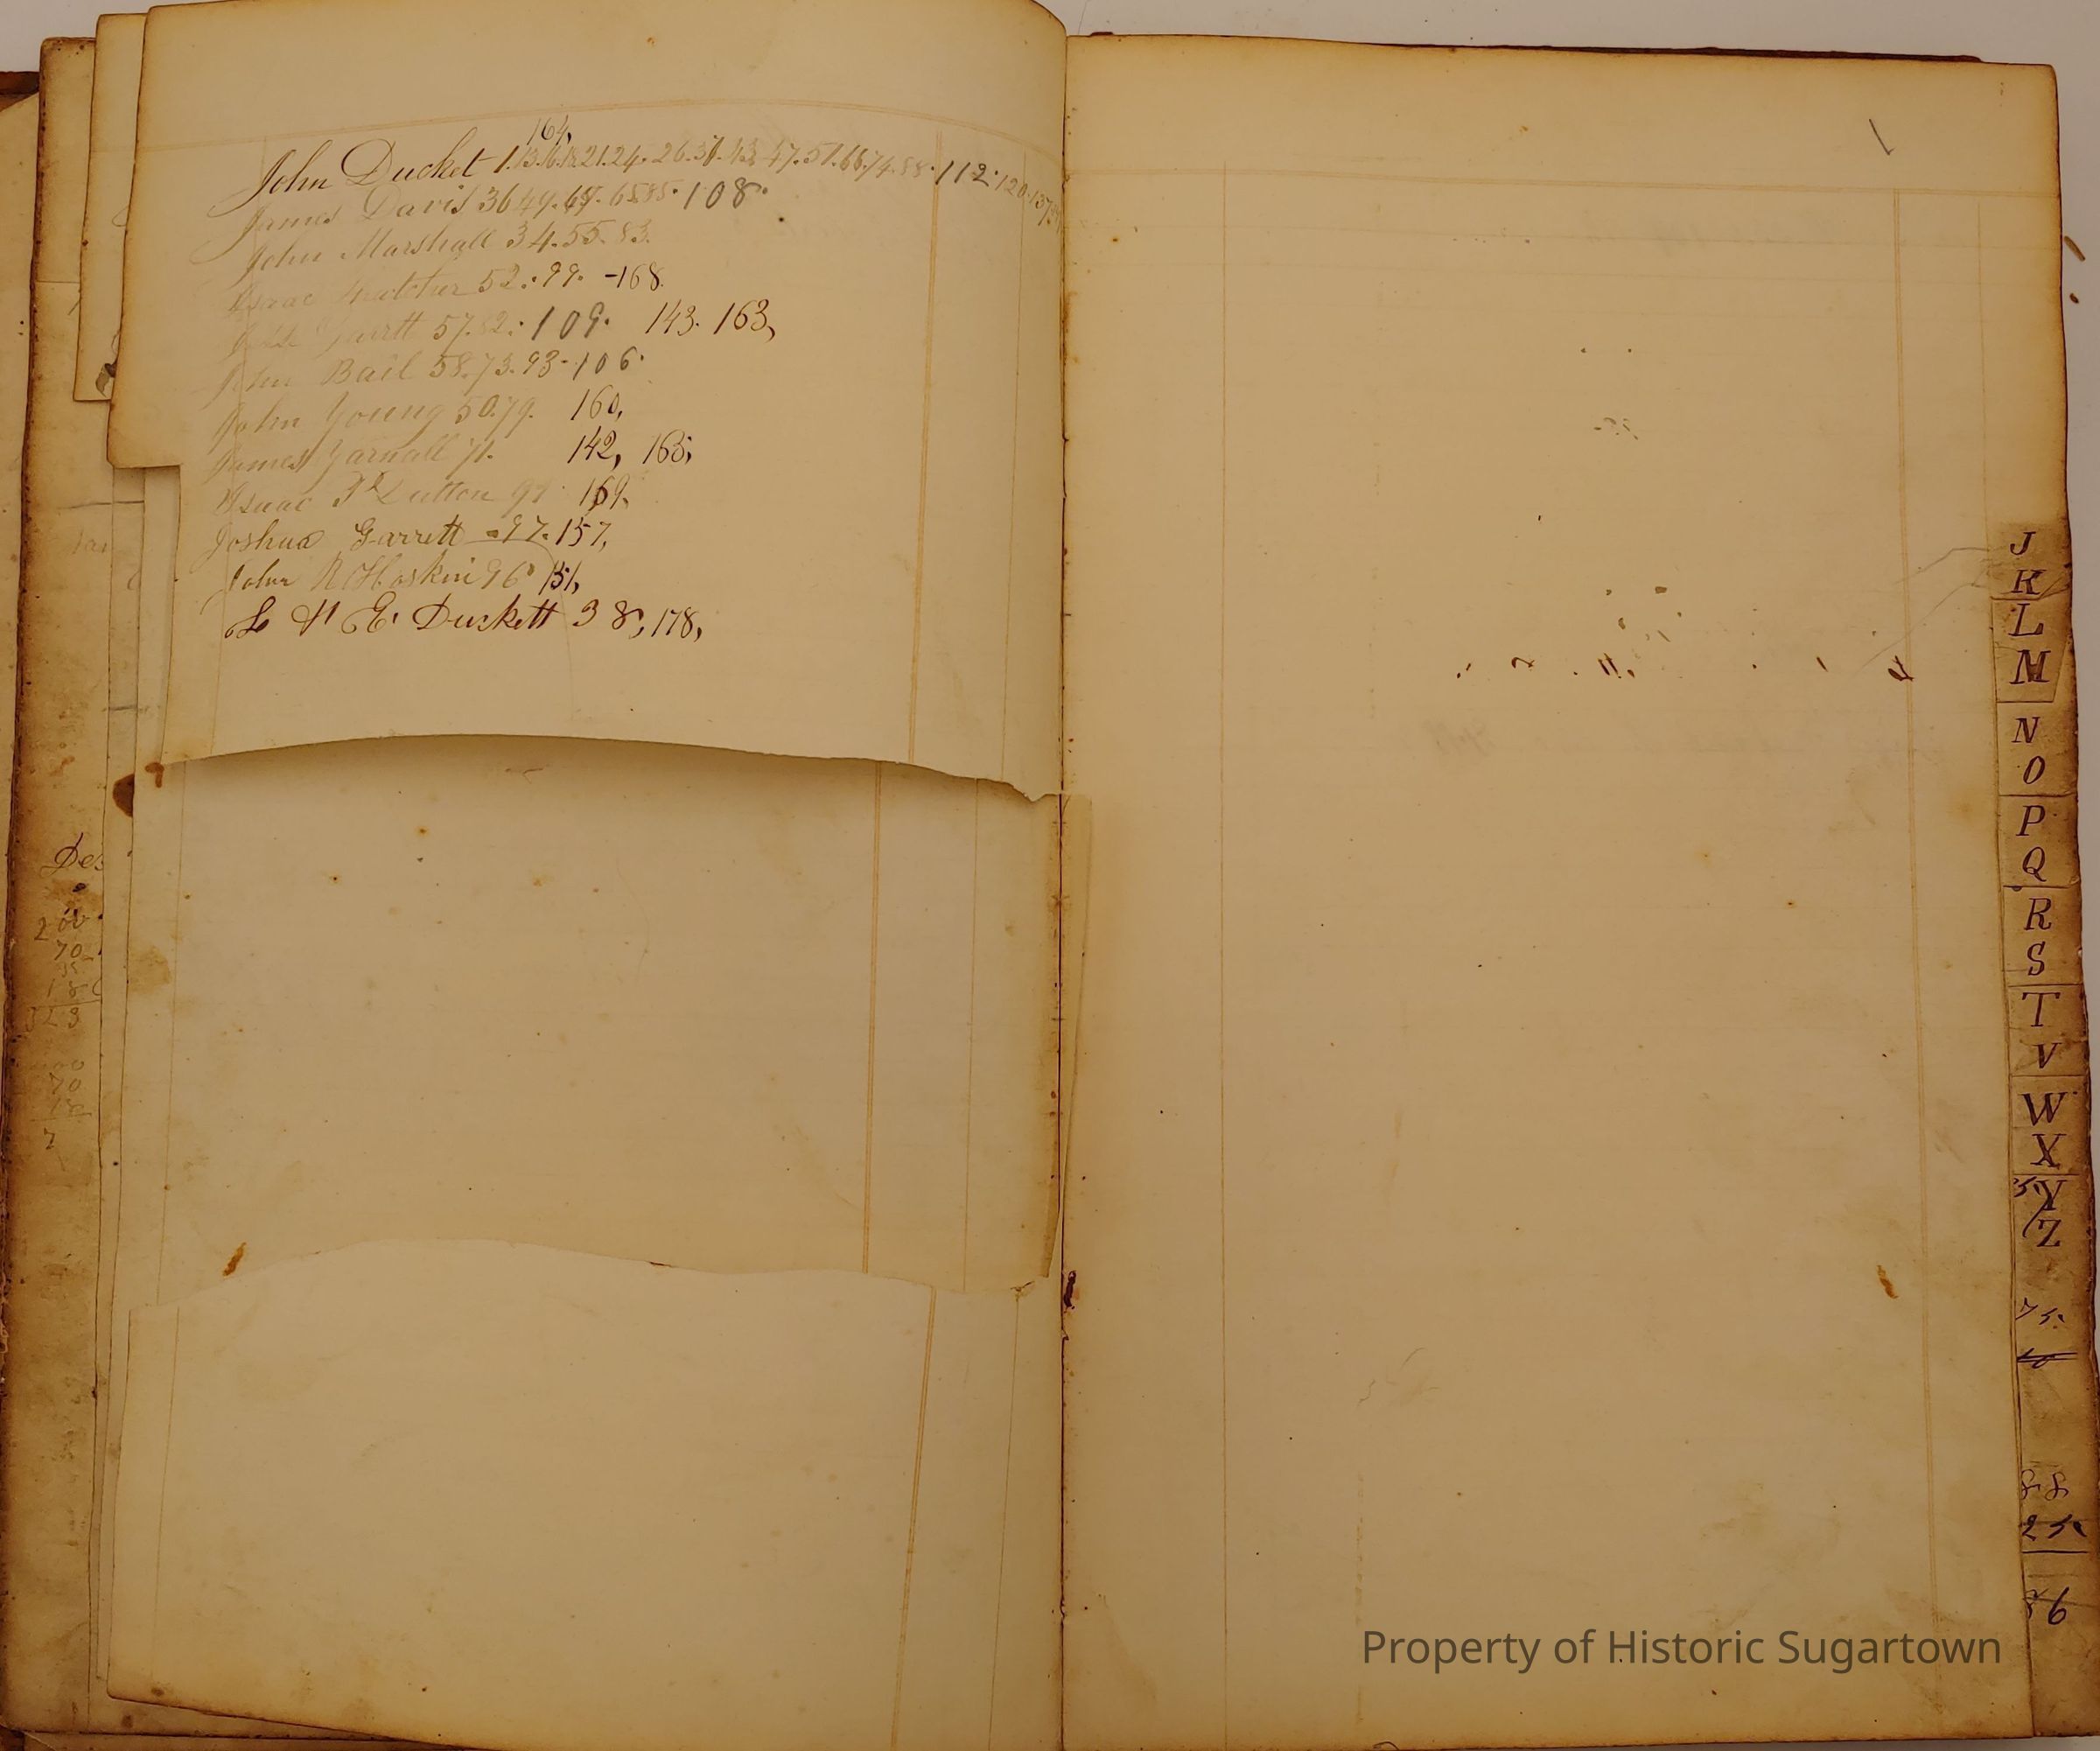 164,
John Ducket 1.13.16.18.21.24. 26.31.43.47.51.66.74.88.112.120.137
James Davis 36 49. 65 85. 108.
John Marshall 34.55.83.
Isaac 52. 99. -168.
Garrett 57.82. 109. 143. 163,
John Bail 58.73.93-106.
John Young 50.79. 160,
James Yarnall 71. 142, 163,
Isaac 169.
Joshua Garrett 97. 157,
John R Hoskin 96 151,
E. Duckett 38, 178,
Des
200
70
323
70
7
J
K
L
M
N
O
P
Q
R
S
T
V
W
X
Y
Z
75.
88
25.
86
Property of Historic Sugartown